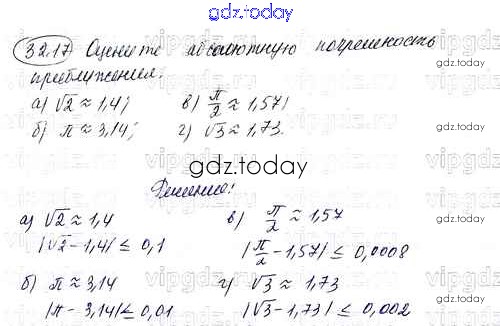 gdz.today
32.17 Оцените абсолютную погрешность
приближения:
а) √2 ≈ 1,4; в) π/2 ≈ 1,57;
б) π ≈ 3,14; г) √3 ≈ 1,73.
gdz.today
Решение:
а) √2 ≈ 1,4 в) π/2 ≈ 1,57
|√2 - 1,4| ≤ 0,1 |π/2 - 1,57| ≤ 0,0008
б) π ≈ 3,14 г) √3 ≈ 1,73
|π - 3,14| ≤ 0,01 |√3 - 1,73| ≤ 0,002